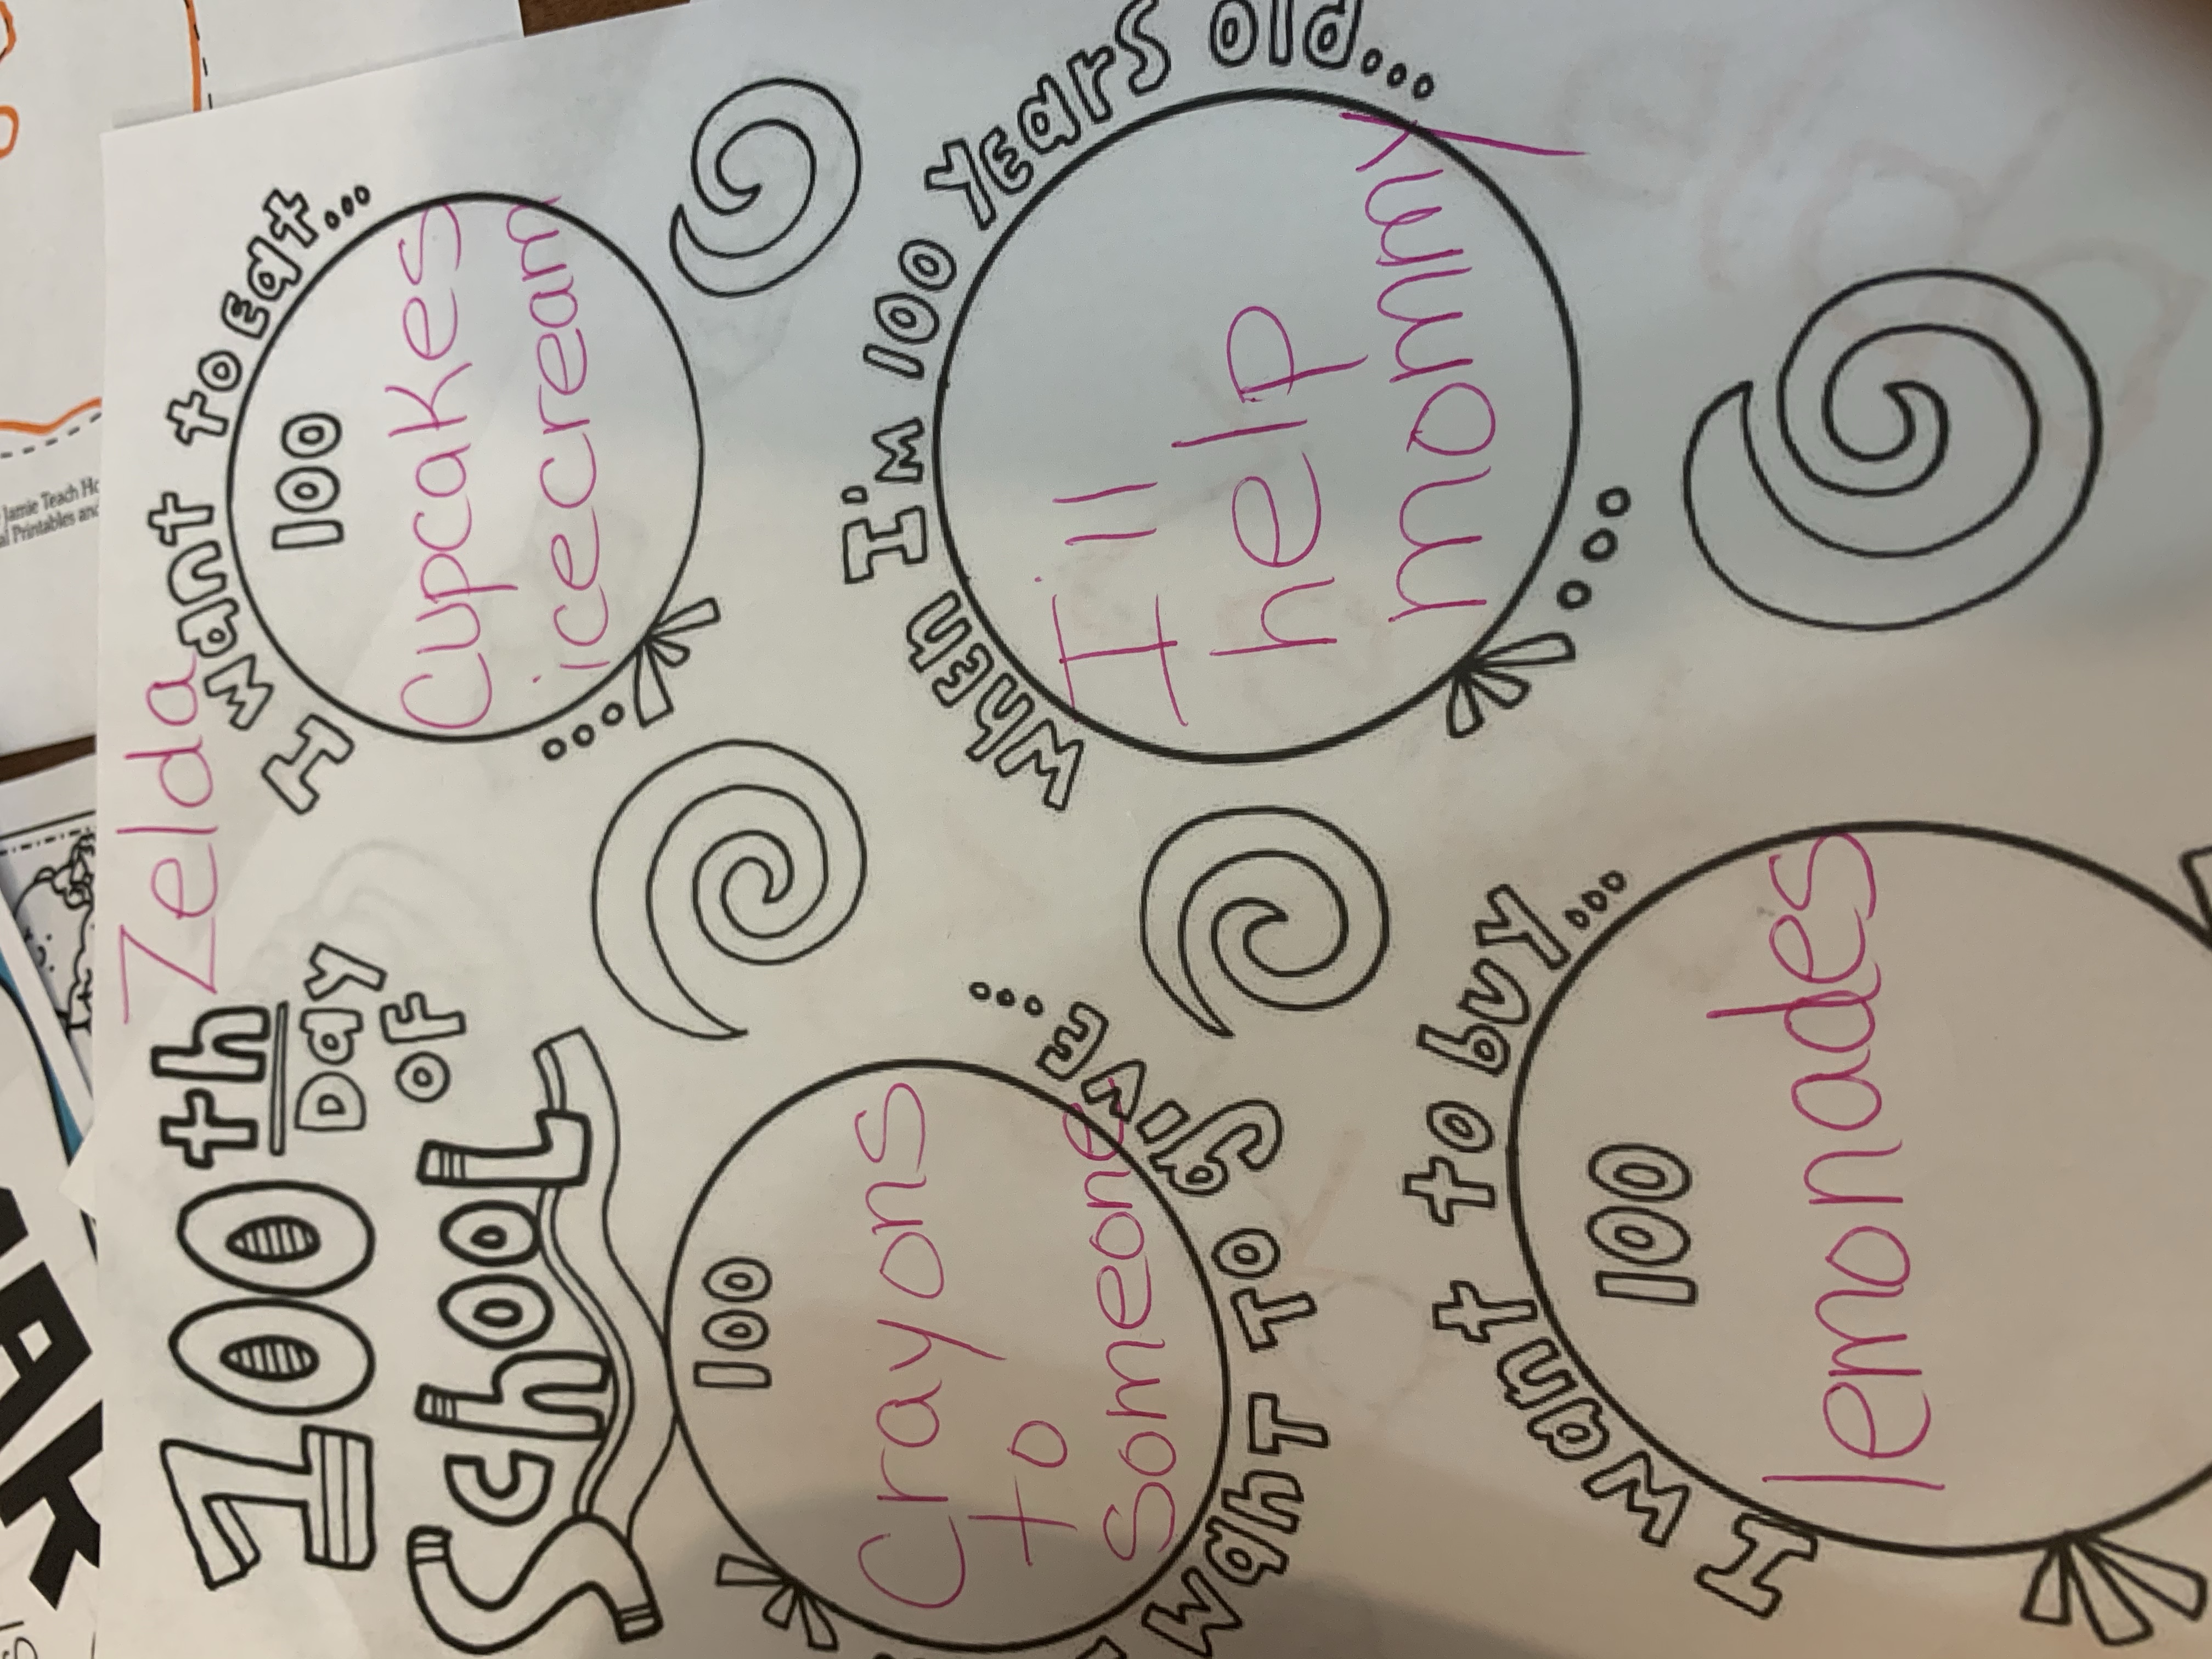 Zelda
100th
Day
OF
School
I want to Eat...
100
Cupakes
icecream
I WahT To give...
100
Crayons
to
someone
When I'm 100 Years old...
I'll
help
mommy
I want to buy...
100
lemonades
Jamie Teach
Printables and